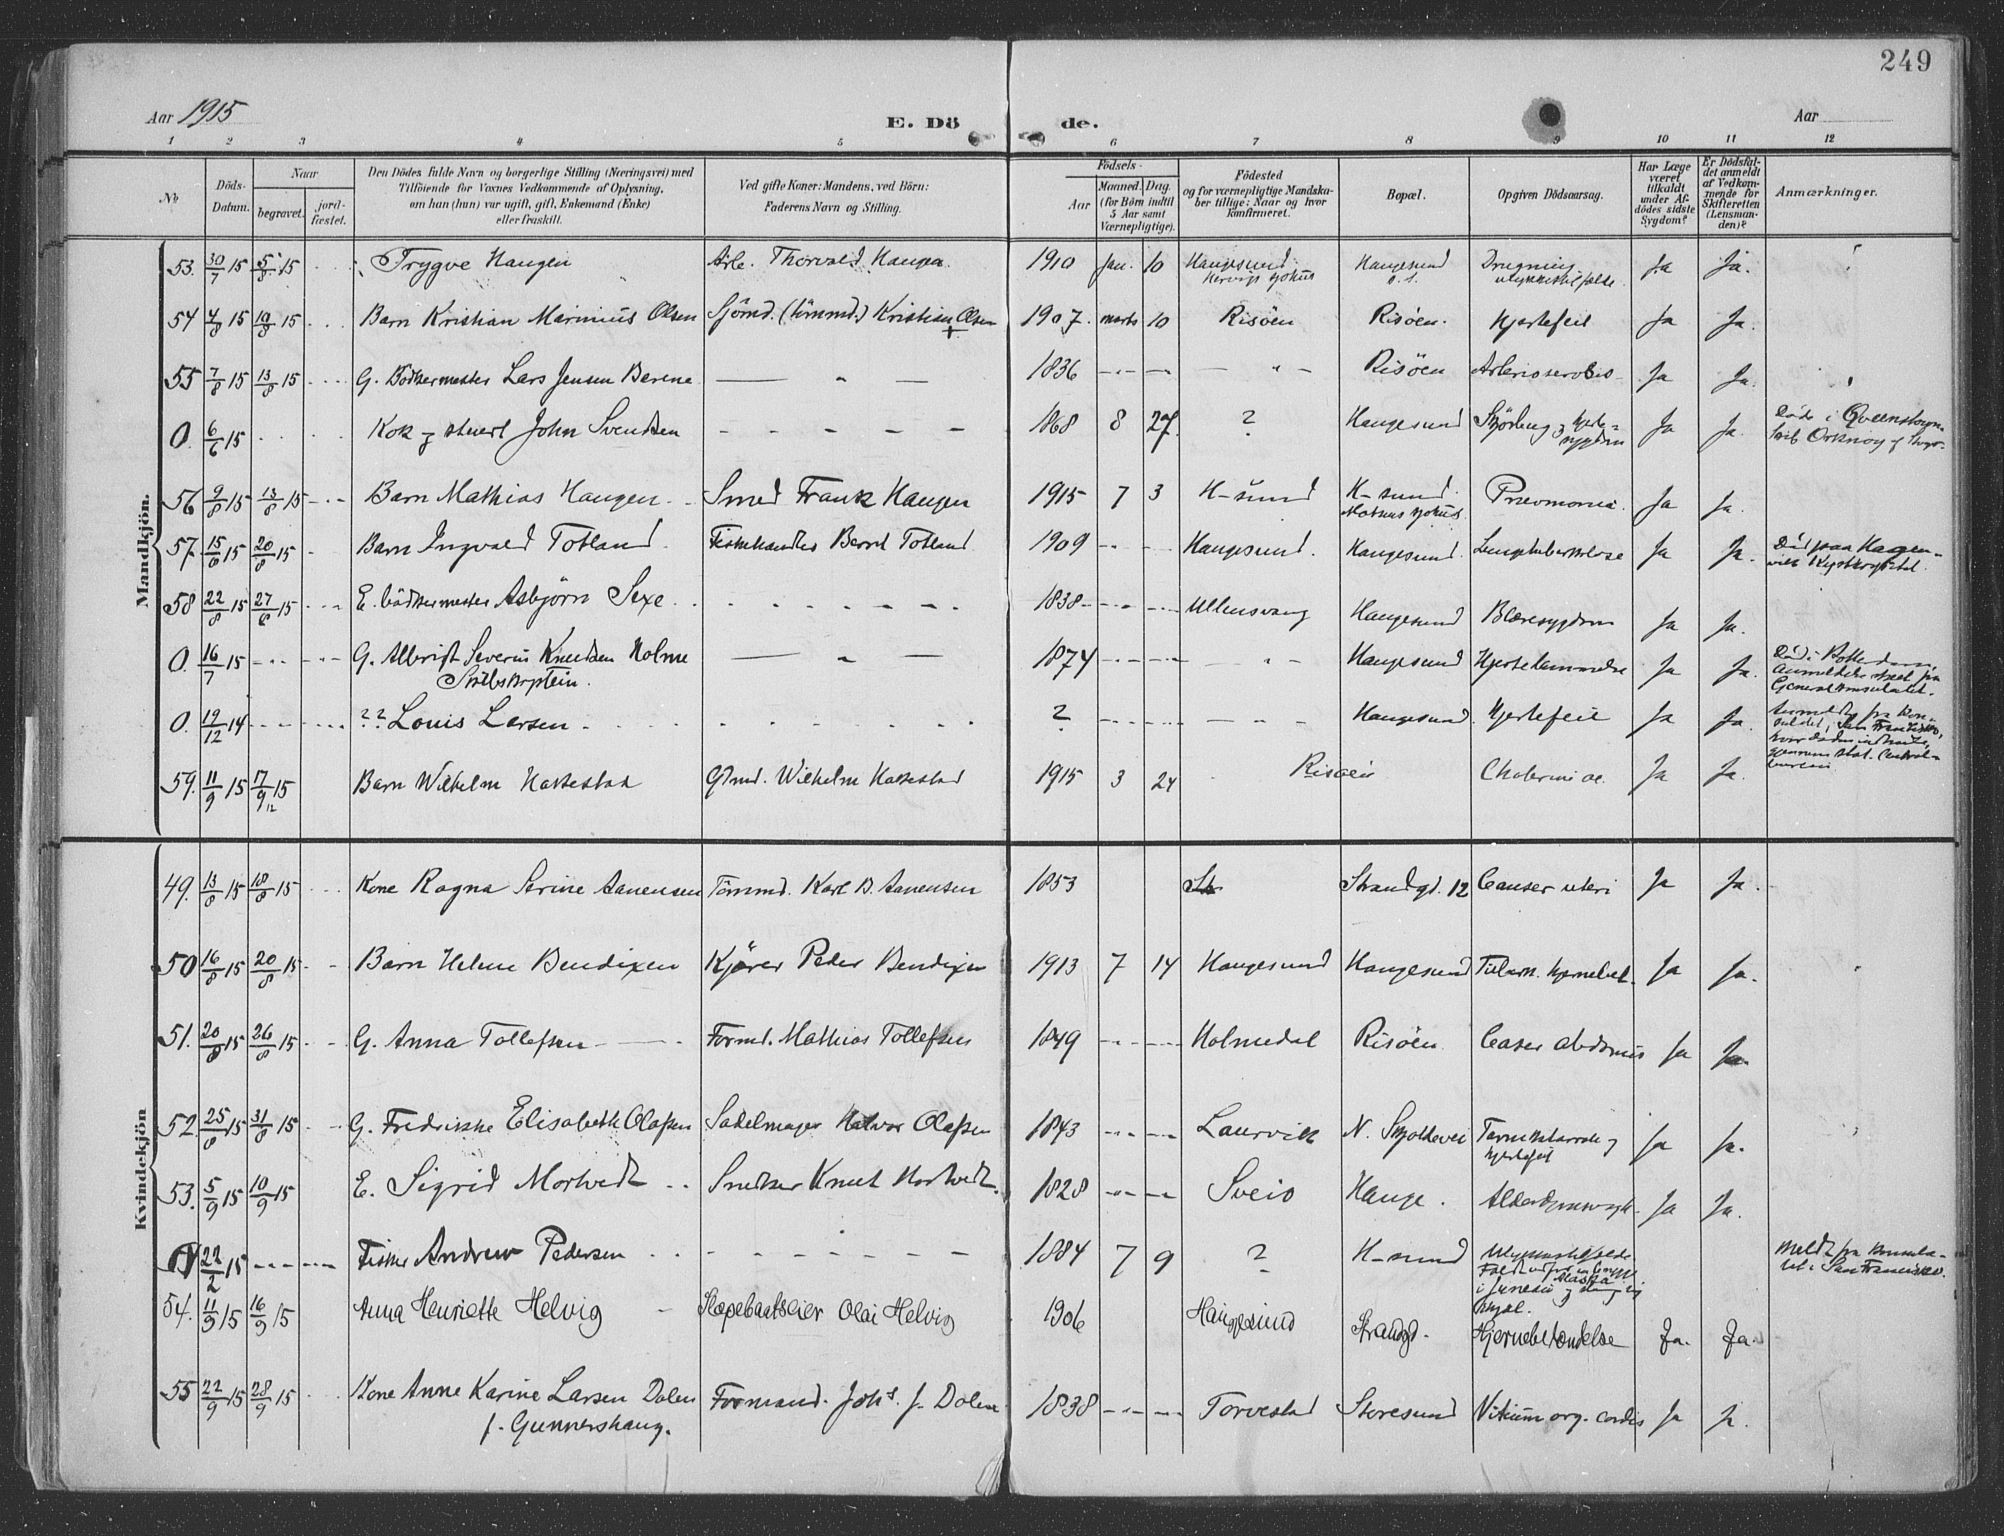 249
Aar 1915
E. Dö de.
Aar
1 2 3 4 5 6 7 8 9 10 11 12
No
Döds-Datum.
Naar
begravet.
jord-fæstet.
Den Dödes fulde Navn og borgerlige Stilling (Næringsvei) med
Tilföiende for Voxnes Vedkommende af Oplysning,
om han (hun) var ugift, gift, Enkemand (Enke)
eller fraskilt.
Ved gifte Koner: Mandens, ved Börn:
Faderens Navn og Stilling.
Födsels-
Aar
Maaned. Dag.
(for Börn indtil
5 Aar samt
Værnepligtige).
Födested
og for værnepligtige Mandska-
ber tillige: Naar og hvor
konfirmeret.
Bopæl.
Opgiven Dödsaarsag.
Har Læge
været
tilkaldt
under Af-
dödes sidste
Sygdom?
Er Dödsfal-
det anmeldt
af Vedkom-
mende for
Skifteretten
(Lensman-
den)?
Anmærkninger.
Mandkjön.
53. 30/7 15 5/8 15 Trygve Haugen Arb. Thorvald Haugen 1910 Jan. 10 Haugesund Haugesund Drugning Ja Ja.
ulykkestilfælde
54 4/8 15 10/8 15 Barn Kristian Marinius Olsen Sjömd. (tömmd.) Kristian Olsen 1907 marts 10 Risöen Risöen. Hjertefeil Ja Ja.
55 7/8 15 13/8 15 G. Bödkermester Lars Jensen Berene — " — 1836 — " — Risöen Ja Ja.
0. 6/6 15 Kok og stuert John Svendsen 1868 8 27 ? Haugesund Ja Ja. Död i Queenstown
56 9/8 15 13/8 15 Barn Mathias Haugen Smed Frank Haugen 1915 7 3 H-sund H-sund Pneumonia Ja Ja.
57. 15/8 15 20/8 15 Barn Ingvald Totland Fiskehandler Bernt Totland 1909 Haugesund. Haugesund. Lungetuberkulose Ja Ja. Död paa Hagen-
vik Kysthospital.
58 22/8 15 27/8 15 E. bödkermester Asbjörn Sexe 1838 Ullensvang Haugesund Blæresygdom Ja Ja.
0. 16/7 15 G. Albrigt Severin Knudsen Holme — " — 1874 — " — Haugesund Hjertelammelse Ja Ja. Död i Rotterdam,
Skibskaptein. Generalkonsulatet.
0. 19/12 14 ?? Louis Larsen ? — " — Haugesund Hjertefeil Ja Ja. Anmeldt fra Kon-
sulatet i San Francisco,
59. 11/9 15 17/9 15 Barn Wilhelm Hakestad Wilhelm Hakestad 1915 3 24 Risöen Ja Ja.
Kvindekjön
49. 13/8 15 18/8 15 Kone Ragna Serine Aanensen Tömmd. Karl B. Aanensen 1853 Strandgd. 12 Cancer uteri Ja Ja.
50 16/8 15 20/8 15 Barn Helene Bendixen Kjörer Peder Bendixen 1913 7 14 Haugesund Haugesund Ja Ja.
51. 20/8 15 26/8 15 G. Anna Tollefsen Formd. Mathias Tollefsen 1849 Holmedal Risöen Ja Ja.
52 25/8 15 31/8 15 G. Fredrikke Elisabeth Olafsen Sadelmager Halvor Olafsen 1843 Laurvik N. Skjoldevei Tarmkatarrh og Ja Ja.
hjertefeil
53. 5/9 15 10/9 15 E. Sigrid Mortvedt Snedker Knut Mortvedt. 1828 Sveio Hauge. Ja Ja.
22/2 15 Fisker Andrew Pedersen 1884 7 9 ? H-sund Ulykkestilfælde Meldt fra Konsula-
tet i San Francisco.
Alaska
54. 11/9 15 16/9 15 Anna Henriette Helvig Slæpebaatseier Olai Helvig 1906 Haugesund Strandgd. Hjernebetændelse Ja. Ja.
55 22/9 15 28/9 15 Kone Anne Karine Larsen Dalen Formand. Johs. J. Dalen 1838 Torvestad Storesund Vitium org. cordis Ja Ja.
f. Gunnershaug.